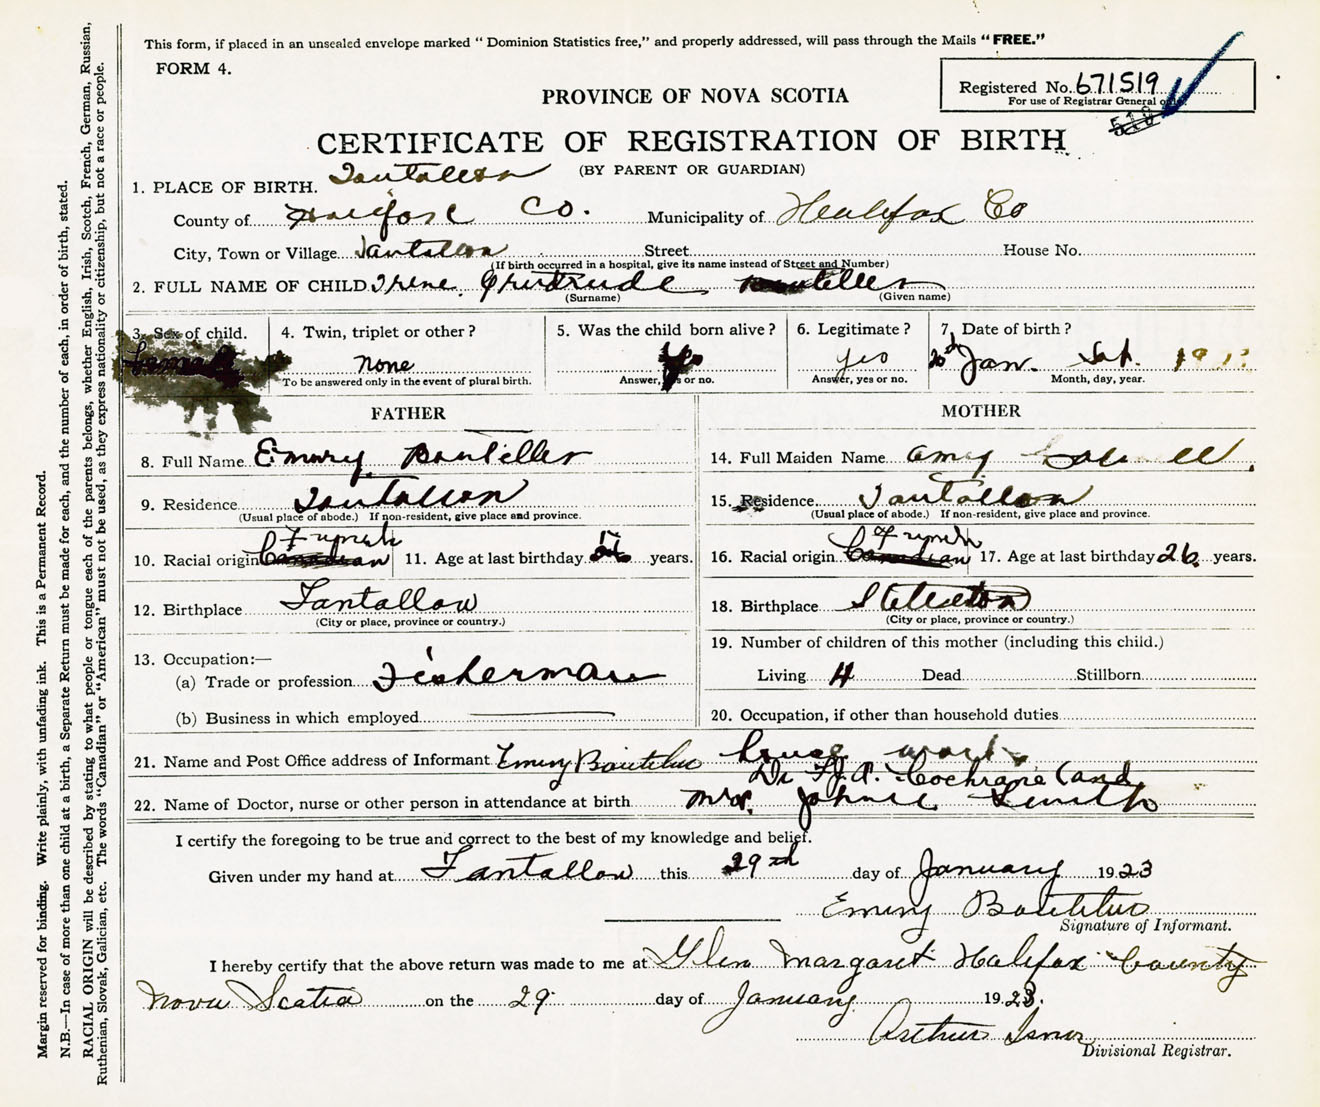 This form, if placed in an unsealed envelope marked “ Dominion Statistics free,” and properly addressed, will pass through the Mails “ FREE.”
FORM 4.
Registered No. 671519
For use of Registrar General only.
518
PROVINCE OF NOVA SCOTIA
CERTIFICATE OF REGISTRATION OF BIRTH
(BY PARENT OR GUARDIAN)
1. PLACE OF BIRTH. Tantallon
County of Halifax Co. Municipality of Halifax Co
City, Town or Village Tantallon Street House No.
(If birth occurred in a hospital, give its name instead of Street and Number)
2. FULL NAME OF CHILD Irene Gertrude
(Surname) (Given name)
3. Sex of child. 4. Twin, triplet or other ? 5. Was the child born alive ? 6. Legitimate ? 7. Date of birth ?
Female none yes yes 20 Jan. Sat.
To be answered only in the event of plural birth. Answer, yes or no. Answer, yes or no. Month, day, year.
FATHER MOTHER
8. Full Name Emery Boutilier 14. Full Maiden Name Amy
9. Residence Tantallon 15. Residence Tantallon
(Usual place of abode.) If non-resident, give place and province. (Usual place of abode.) If non-resident, give place and province.
French French
10. Racial origin Canadian 11. Age at last birthday years. 16. Racial origin Canadian 17. Age at last birthday 26 years.
12. Birthplace Tantallon 18. Birthplace
(City or place, province or country.) (City or place, province or country.)
13. Occupation:— 19. Number of children of this mother (including this child.)
(a) Trade or profession Fisherman Living 4 Dead Stillborn
(b) Business in which employed 20. Occupation, if other than household duties
house work
21. Name and Post Office address of Informant Emery Boutilier
Dr F.J.A. Cochrane (and
22. Name of Doctor, nurse or other person in attendance at birth Mrs. Johnie Smith
I certify the foregoing to be true and correct to the best of my knowledge and belief.
Given under my hand at Tantallon this 29th day of January 1923
Emery Boutilier
Signature of Informant.
I hereby certify that the above return was made to me at Glen Margaret Halifax County
Nova Scotia on the 29 day of January 1923.
Arthur Isnor
Divisional Registrar.
Margin reserved for binding. Write plainly, with unfading ink. This is a Permanent Record.
N.B.—In case of more than one child at a birth, a Separate Return must be made for each, and the number of each, in order of birth, stated.
RACIAL ORIGIN will be described by stating to what people or tongue each of the parents belongs, whether English, Irish, Scotch, French, German, Russian,
Ruthenian, Slovak, Galician, etc. The words “Canadian” or “American” must not be used, as they express nationality or citizenship, but not a race or people.